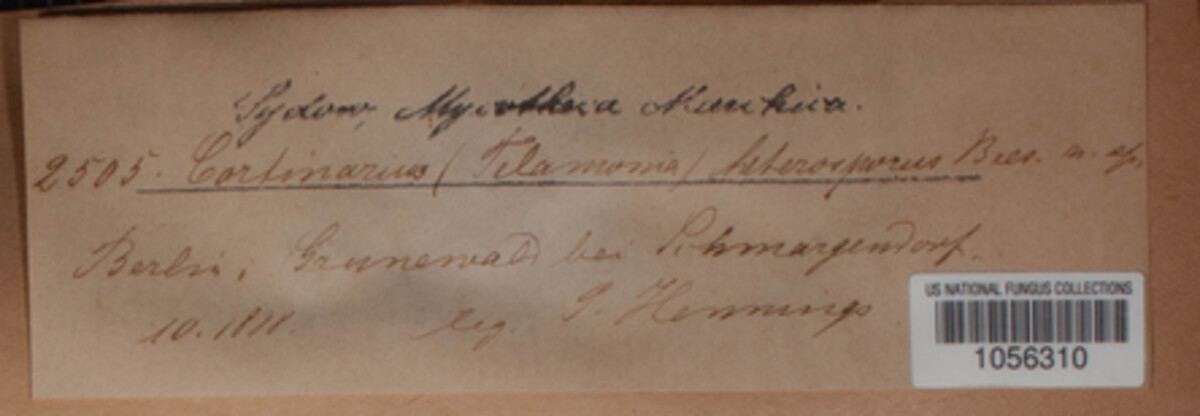 Sydow, Mycotheca Marchica.
2505. Cortinarius (Telamonia) heterosporus Bres. n. sp.
Berlin, Grunewald bei Schmargendorf.
10. 1888. leg. P. Hennings
US NATIONAL FUNGUS COLLECTIONS
1056310